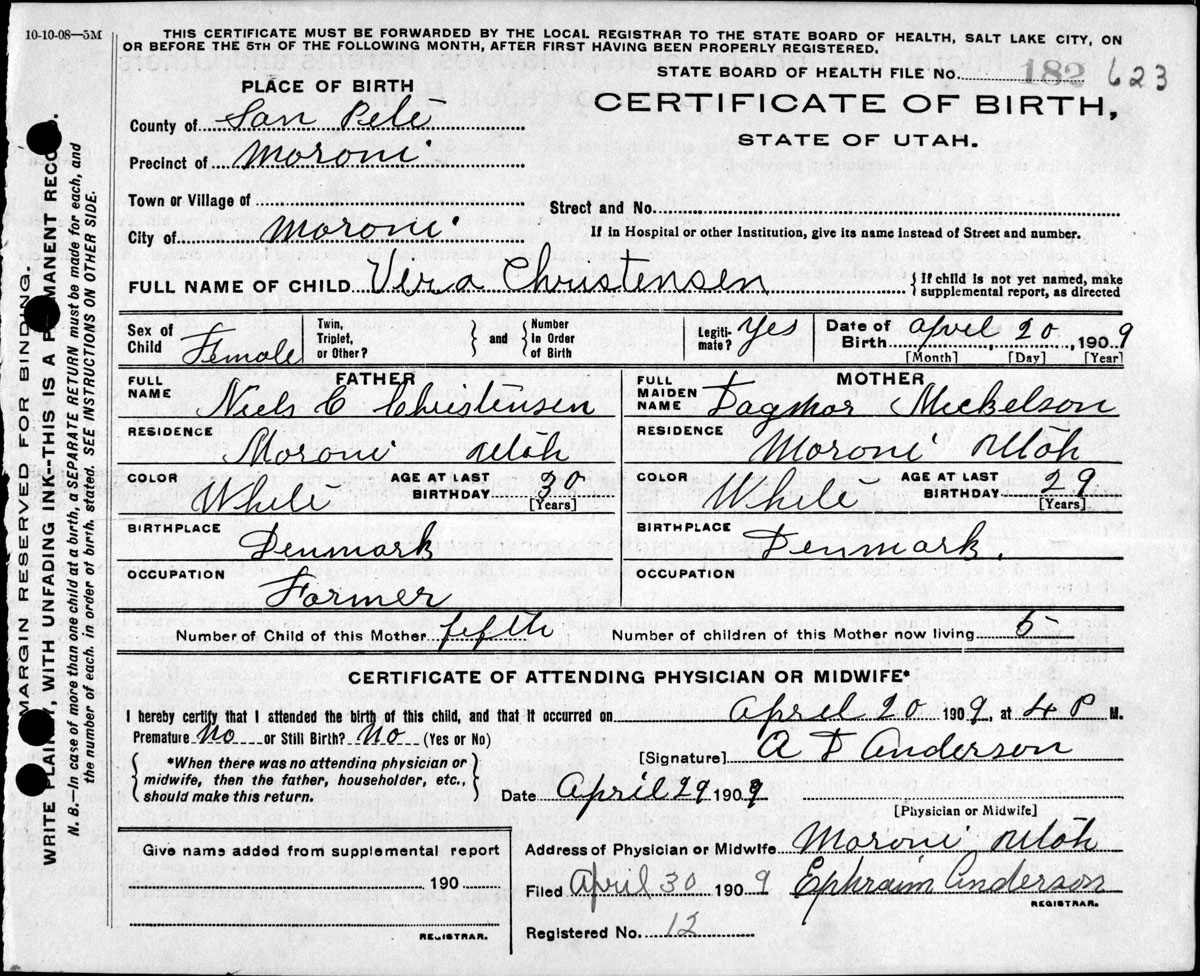 10-10-08—5M
THIS CERTIFICATE MUST BE FORWARDED BY THE LOCAL REGISTRAR TO THE STATE BOARD OF HEALTH, SALT LAKE CITY, ON
OR BEFORE THE 5TH OF THE FOLLOWING MONTH, AFTER FIRST HAVING BEEN PROPERLY REGISTERED.
STATE BOARD OF HEALTH FILE No. 182 623
PLACE OF BIRTH
CERTIFICATE OF BIRTH,
STATE OF UTAH.
County of San Pete
Precinct of Moroni
Town or Village of
Street and No.
City of Moroni
If in Hospital or other Institution, give its name instead of Street and number.
FULL NAME OF CHILD Vera Christensen {If child is not yet named, make
supplemental report, as directed
Sex of Child Female Twin, Triplet, or Other? } and { Number In Order of Birth Legiti-mate? Yes Date of Birth April 20, 1909
[Month] [Day] [Year]
FATHER
FULL NAME Niels C Christensen
RESIDENCE Moroni Utah
COLOR White AGE AT LAST BIRTHDAY 30
[Years]
BIRTHPLACE Denmark
OCCUPATION Farmer
MOTHER
FULL MAIDEN NAME Dagmar Mickelson
RESIDENCE Moroni Utah
COLOR White AGE AT LAST BIRTHDAY 29
[Years]
BIRTHPLACE Denmark.
OCCUPATION
Number of Child of this Mother fifth Number of children of this Mother now living 5
CERTIFICATE OF ATTENDING PHYSICIAN OR MIDWIFE*
I hereby certify that I attended the birth of this child, and that it occurred on April 20 1909, at 4 P M.
Premature No or Still Birth? No (Yes or No)
[Signature] A D Anderson
{ *When there was no attending physician or
midwife, then the father, householder, etc.,
should make this return. }
Date April 29 1909
[Physician or Midwife]
Give name added from supplemental report
190
REGISTRAR.
Address of Physician or Midwife Moroni Utah
Filed April 30 1909 Ephraim Anderson
REGISTRAR.
Registered No. 12
MARGIN RESERVED FOR BINDING.
WRITE PLAINLY, WITH UNFADING INK--THIS IS A PERMANENT RECORD.
N. B.—In case of more than one child at a birth, a SEPARATE RETURN must be made for each, and
the number of each. in order of birth. stated. SEE INSTRUCTIONS ON OTHER SIDE.